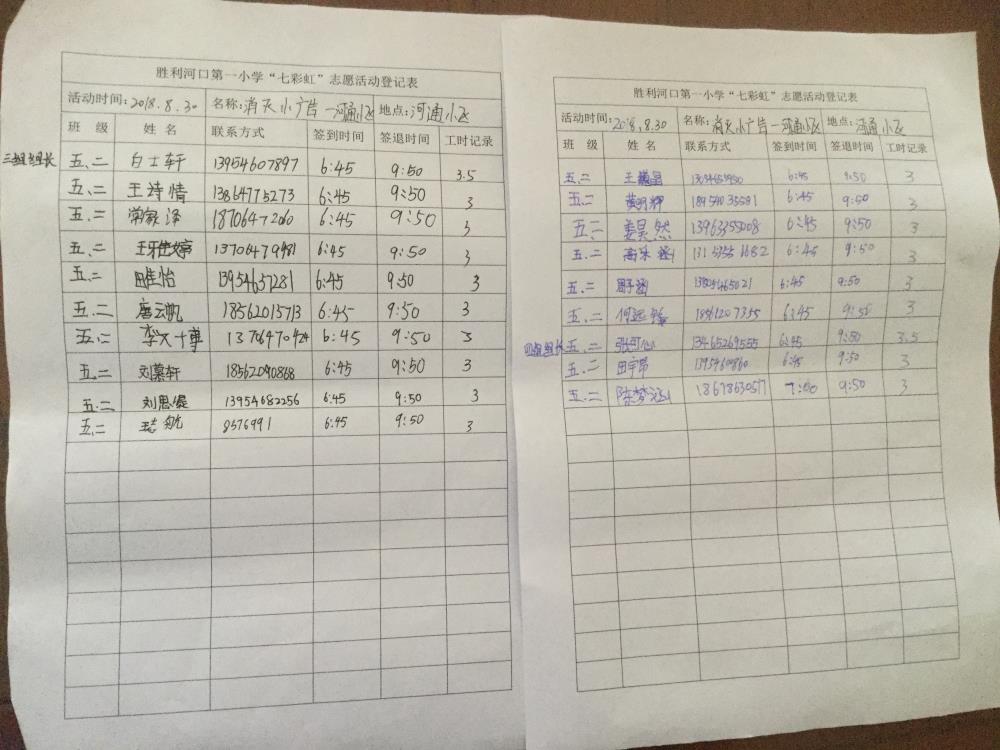 胜利河口第一小学“七彩虹”志愿活动登记表
活动时间:2018.8.30 名称:消灭小广告—河通小区 地点:河通小区
班 级 姓 名 联系方式 签到时间 签退时间 工时记录
三组组长 五.二 白士轩 13954607897 6:45 9:50 3.5
五.二 王诗情 13864775273 6:45 9:50 3
五.二 常家泽 18706472060 6:45 9:50 3
五.二 13706479481 6:45 9:50 3
五.二 怡 13954657281 6:45 9:50 3
五.二 唐云帆 18562015713 6:45 9:50 3
五.二 李 13706470424 6:45 9:50 3
五.二 刘慕轩 18562090868 6:45 9:50 3
五.二 刘思缇 13954682256 6:45 9:50 3
五.二 航 8576991 6:45 9:50 3
胜利河口第一小学“七彩虹”志愿活动登记表
活动时间:2018.8.30 名称:消灭小广告—河通小区 地点:河通小区
班 级 姓 名 联系方式 签到时间 签退时间 工时记录
五.二 王 昌 6:45 9:50 3
五.二 黄明辉 18954035591 6:45 9:50 3
五.二 姜昊然 13963355008 6:45 9:50 3
五.二 高乐 6:45 9:50 3
五.二 涵 6:45 9:50 3
五.二 何 6:45 9:50 3
四组组长 五.二 张可心 13465269555 6:45 9:50 3.5
五.二 田宇昂 6:45 9:50 3
五.二 陈梦涵 18678630577 7:00 9:50 3